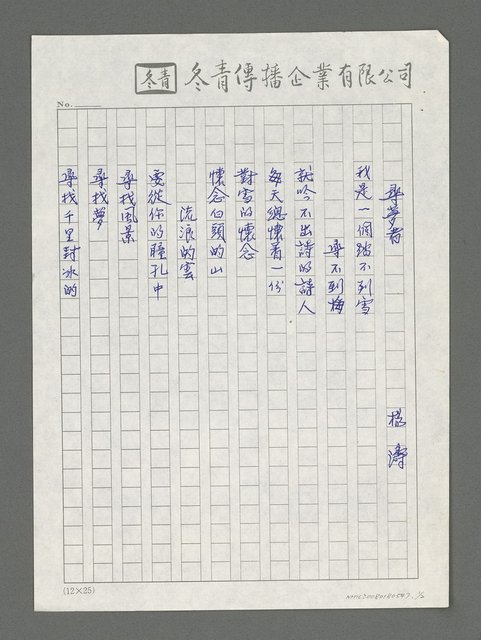 冬青 冬青傳播企業有限公司
No.
尋夢者 楊濤
我是一個踏不到雪
尋不到梅
就吟不出詩的詩人
每天總懷着一份
對雪的懷念
懷念白頭的山
流浪的雲
要從你的瞳孔中
尋找風景
尋找夢
尋找千里封冰的
(12×25)